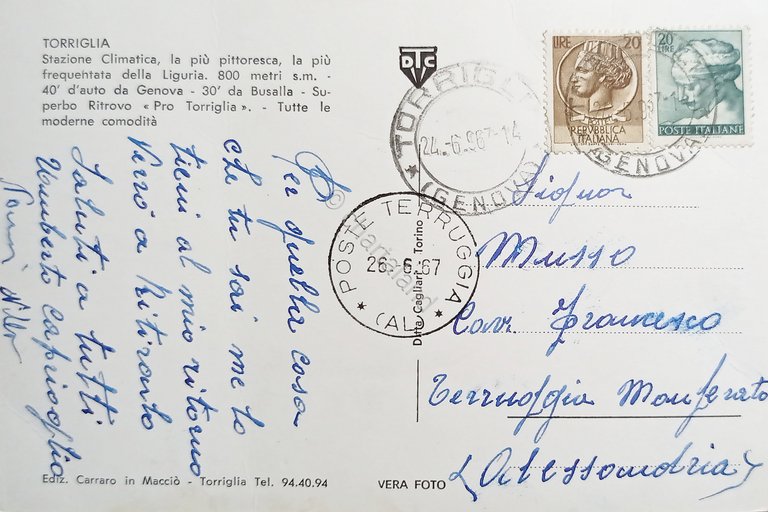 TORRIGLIA
Stazione Climatica, la più pittoresca, la più
frequentata della Liguria. 800 metri s.m. -
40' d'auto da Genova - 30' da Busalla - Su-
perbo Ritrovo «Pro Torriglia». - Tutte le
moderne comodità
DTC
TORRIGLIA
24.-6.967-14
(GENOVA)
LIRE 20
REPVBBLICA
ITALIANA
20
LIRE
POSTE ITALIANE
GENOVA
Per quella cosa
che tu sai me lo
tieni al mio ritorno
Verrò a Ritirarlo
Saluti a tutti
Umberto Caprioglio
POSTE TERRUGGIA
26-6-67
(AL)
Ditta Cagliari - Torino
Signor
Musso
Cavr Francesco
Terruggia Monferato
(Alessandria)
Ediz. Carraro in Macciò - Torriglia Tel. 94.40.94
VERA FOTO